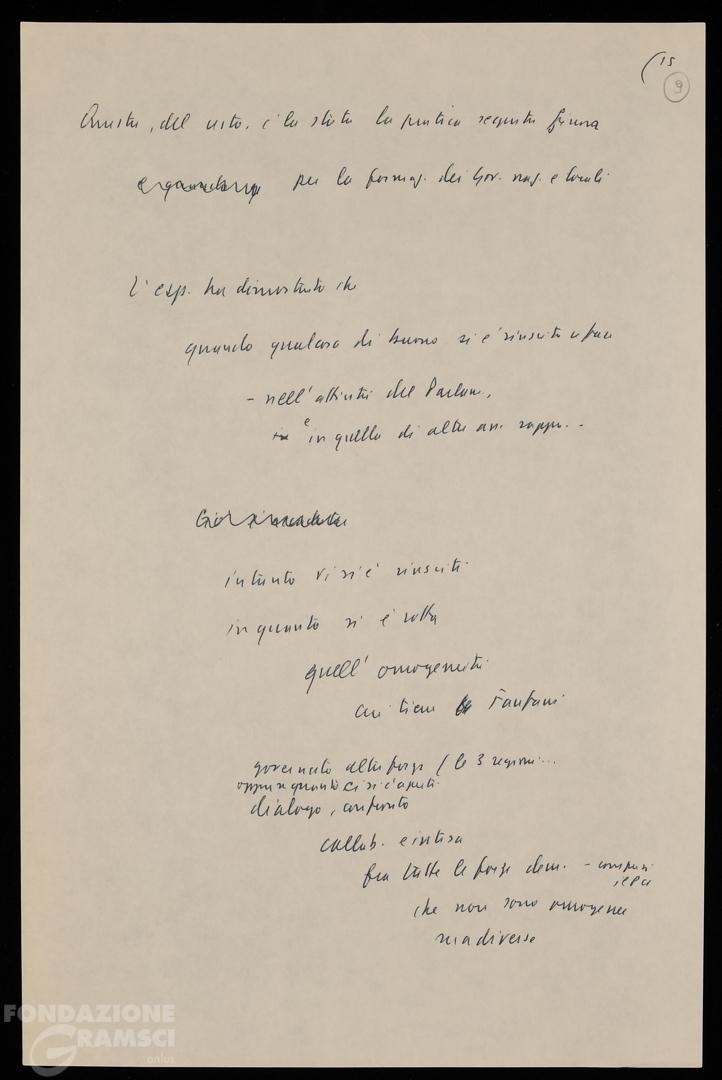 (15
9
Questa, del resto, è la stata la pratica seguita finora
per la formaz. dei Gov. naz. e locali
L'esp. ha dimostrato che
quando qualcosa di buono si è riusciti a fare
- nell'attività del Parlam.,
e in quella di altre ass. rappr. -
intanto vi si è riusciti
in quanto si è rotta
quell' omogeneità
cui tiene Fanfani
governato altre forze (le 3 regioni...
oppure quanto ci si è aperti
dialogo, confronto
collab. e intesa
fra tutte le forze dem. - compresi
il PCI
che non sono omogenee
ma diverse
FONDAZIONE
GRAMSCI
onlus